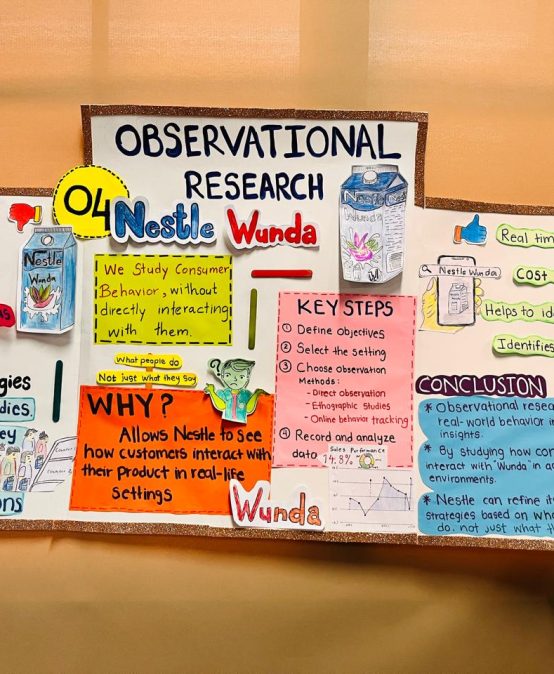 OBSERVATIONAL
RESEARCH
04
Nestle Wunda
Nestle
Wunda
We Study Consumer
Behavior, without
directly interacting
with them.
What people do
Not just what they say
WHY?
Allows Nestle to see
how customers interact with
their Product in real-life
settings
Wunda
KEY STEPS
① Define objectives
② Select the setting
③ Choose observation
Methods:
- Direct observation
- Ethographic Studies
- Online behavior tracking
④ Record and analyze
data
Sales Performance
14.8%
Nestle Wunda
Real tim
Cost
Helps to id
Identifies
CONCLUSION
* Observational resea
real-world behavior i
insights.
* By studying how con
interact with "Wunda" in a
environments.
* Nestle can refine it
strategies based on wh
do, not just what th
gies
dies.
ey
ons